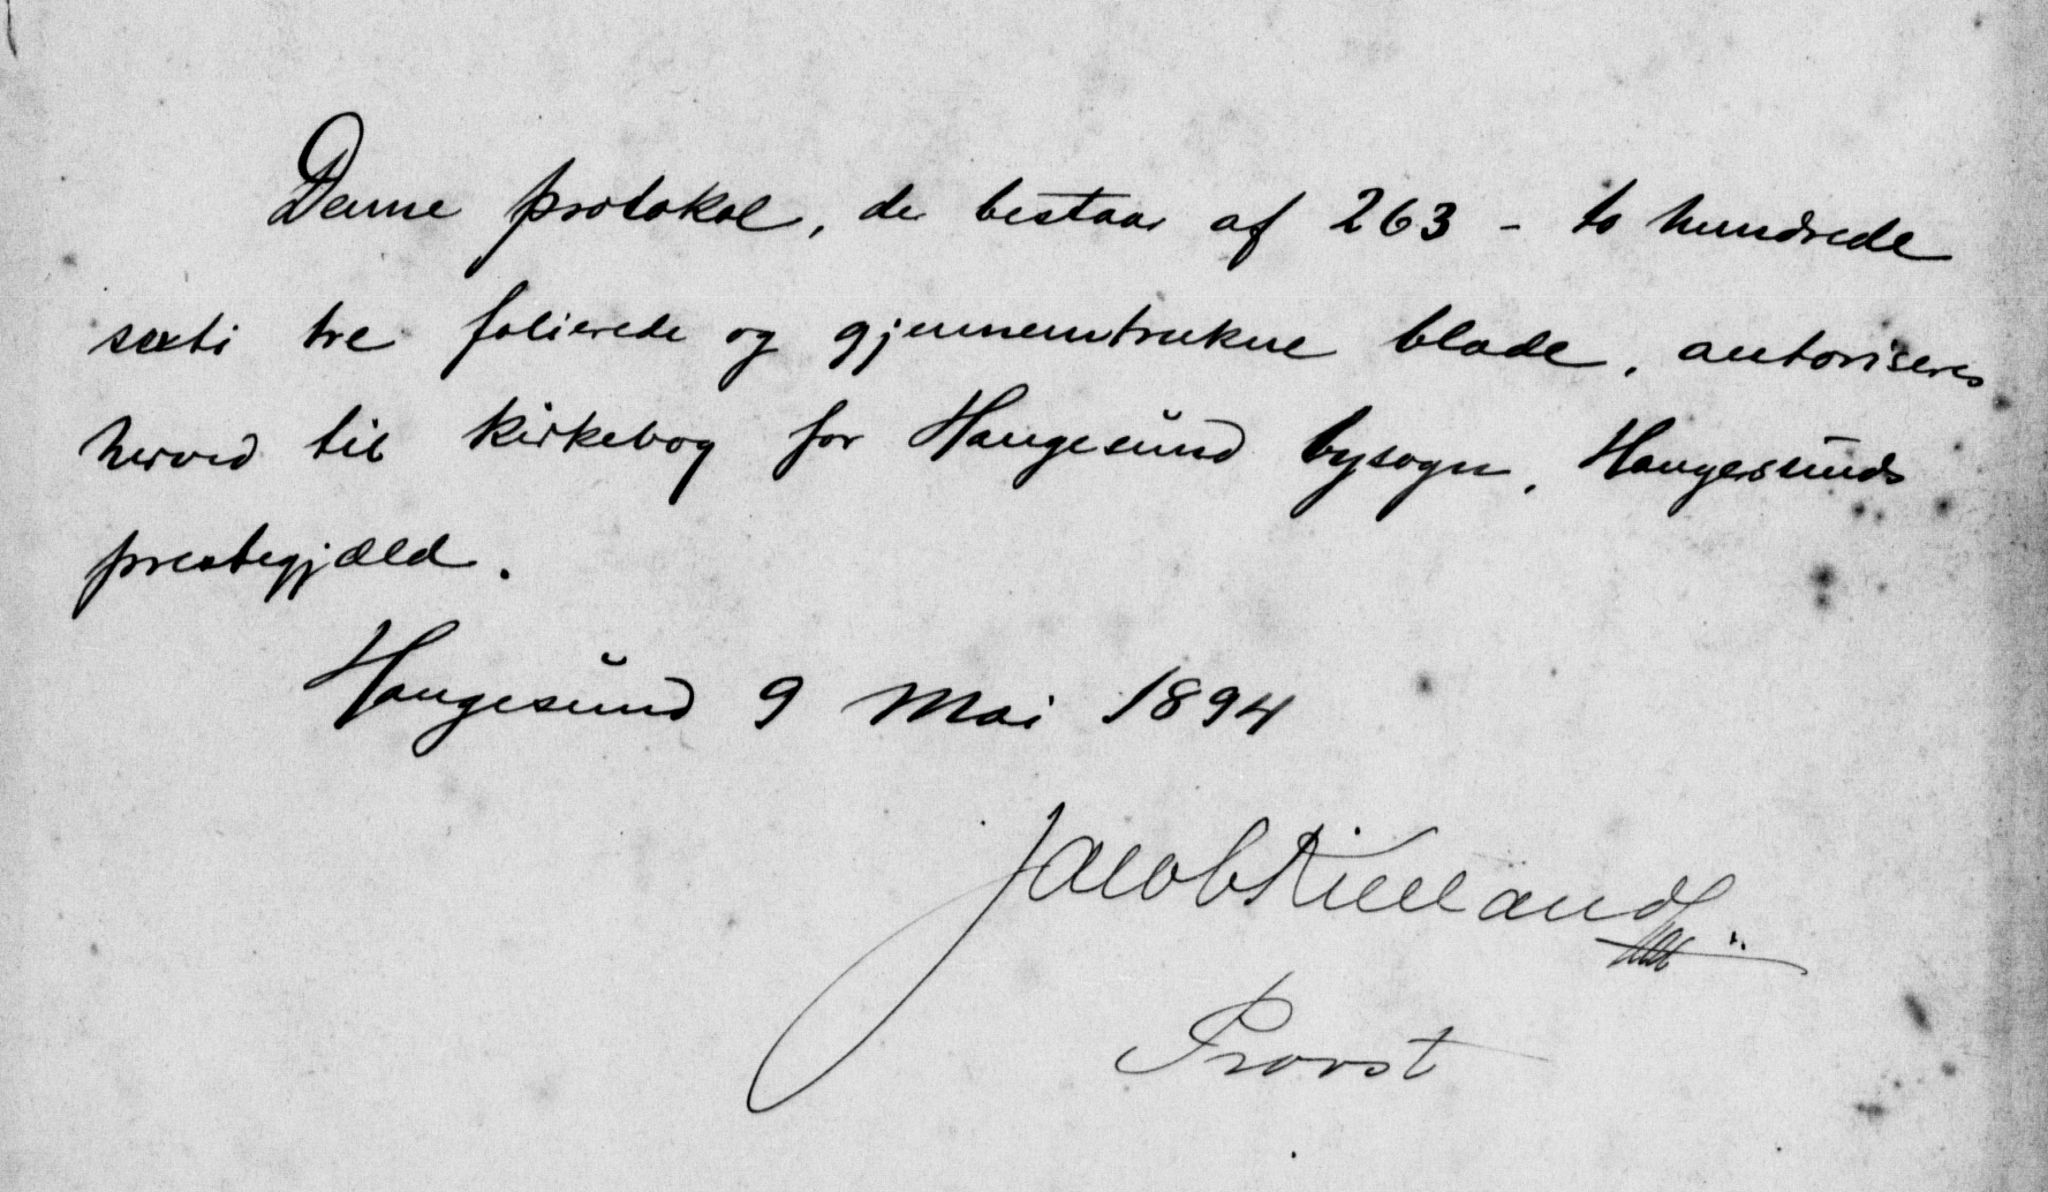 Denne protokol, der bestaar af 263 - to hundrede
sexti tre folierede og gjennemtrukne blade, autoriseres
herved til kirkebog for Haugesund bysogn, Haugesunds
prestegjæld.
Haugesund 9 Mai 1894
Jacob Kielland
Provst